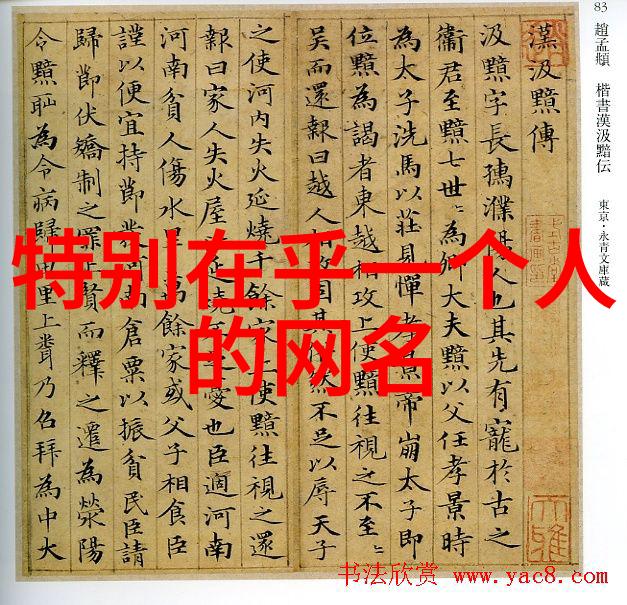 83 趙孟頫 楷書漢汲黯伝 東京・永青文庫蔵
漢汲黯傳
汲黯字長孺濮陽人也其先有寵於古之
衞君至黯七世〻為卿大夫黯以父任孝景時
為太子洗馬以莊見憚孝景帝崩太子即
位黯為謁者東越相攻上使黯往視之不至〻
吳而還報曰越人相攻固其俗然不足以辱天子
之使河内失火延燒千餘家上使黯往視之還
報曰家人失火屋比延燒不足憂也臣適河南
河南貧人傷水旱萬餘家或父子相食臣
謹以便宜持節發河南倉粟以振貧民臣請
歸節伏矯制之罪上賢而釋之遷為滎陽
令黯恥為令病歸田里上聞乃召拜為中大
特别在乎一个人
的网名
书法欣赏 www.yac8.com